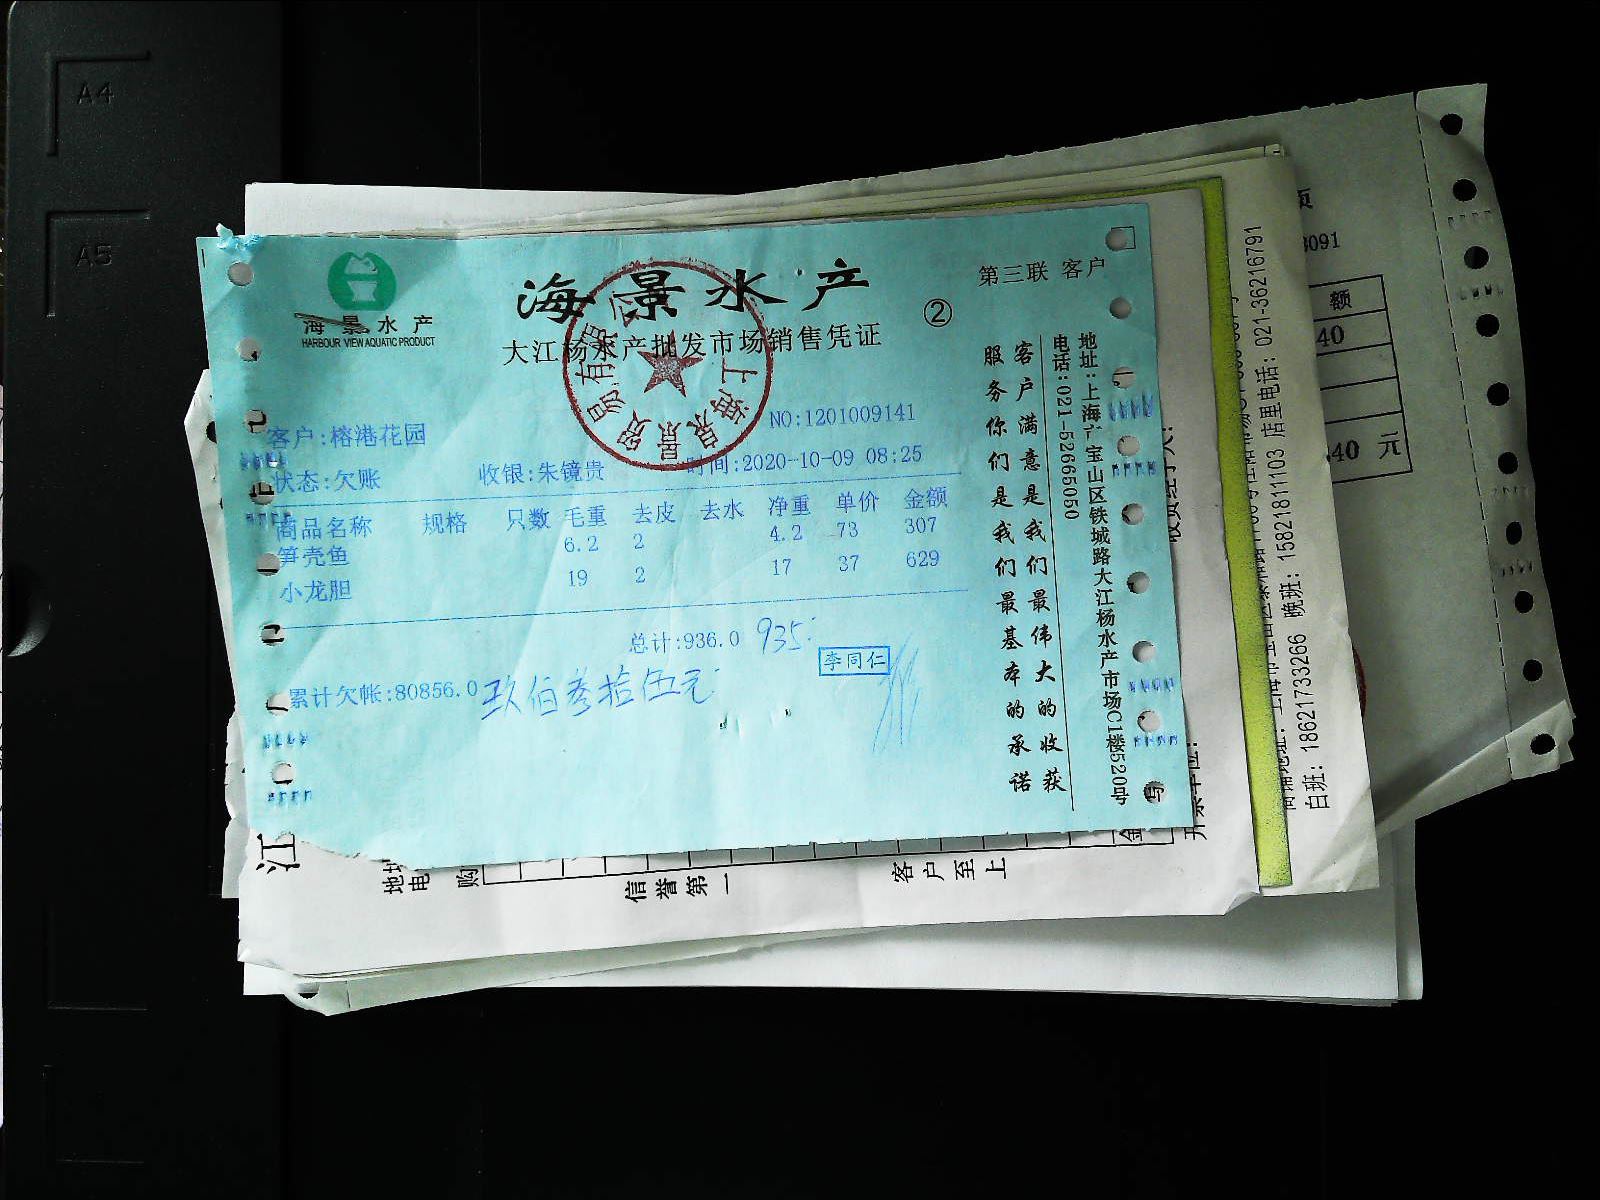 A4
A5
海景水产
HARBOUR VIEW AQUATIC PRODUCT
海景水产
大江杨水产批发市场销售凭证
②
第三联 客户
客户:榕港花园
NO:1201009141
状态:欠账
收银:朱镜贵
时间:2020-10-09 08:25
商品名称 规格 只数 毛重 去皮 去水 净重 单价 金额
笋壳鱼 6.2 2 4.2 73 307
小龙胆 19 2 17 37 629
总计:936.0 935
累计欠帐:80856.0 玖佰叁拾伍元
李同仁
客户满意是我们最伟大的收获
服务你们是我们最基本的承诺
地址:上海市宝山区铁城路大江杨水产市场C1楼520号
电话:021-52665050
江
购
信誉第一
客户至上
金
店里电话: 021-36216791
白班: 18621733266 晚班: 15821811103
页
3091
额
40
.40 元